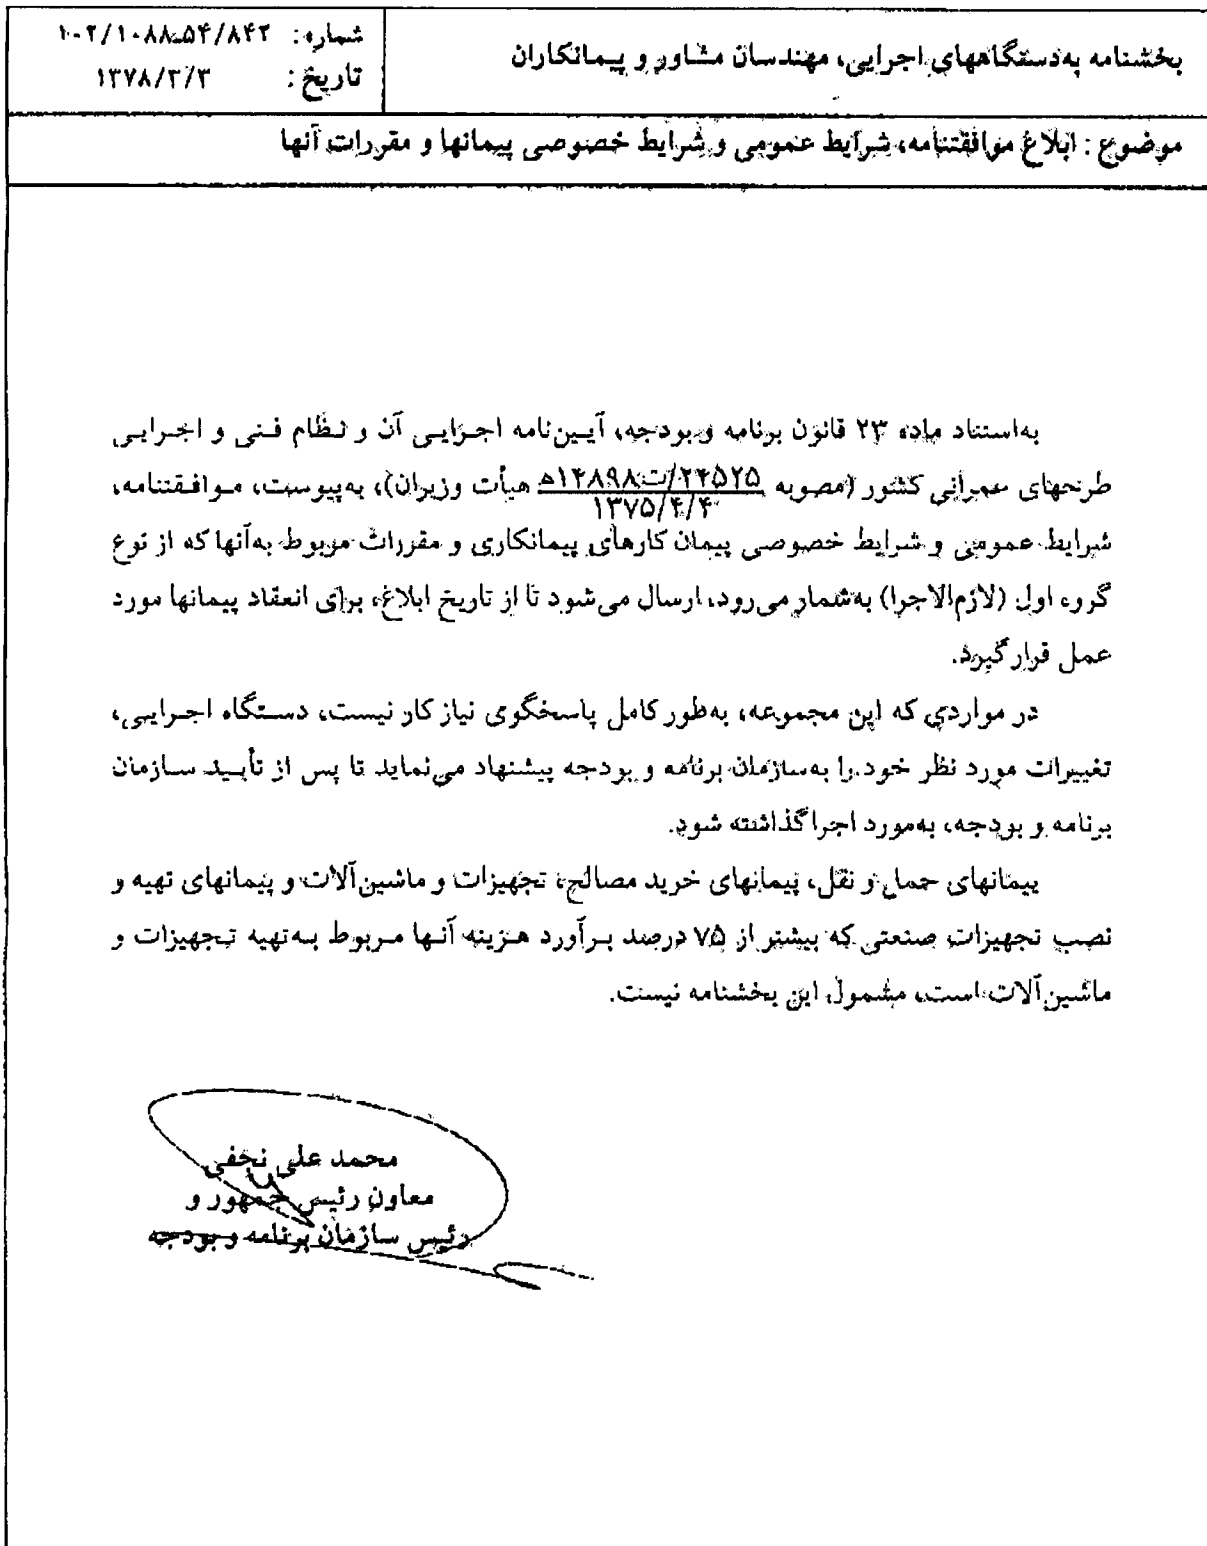 بخشنامه به‌دستگاههای اجرایی، مهندسان مشاور و پیمانکاران
شماره: ۱۰۲/۱۰۸۸ـ۵۴/۸۴۲
تاریخ: ۱۳۷۸/۳/۳
موضوع : ابلاغ موافقتنامه، شرایط عمومی و شرایط خصوصی پیمانها و مقررات آنها
به‌استناد ماده ۲۳ قانون برنامه و بودجه، آیین‌نامه اجرایی آن و نظام فنی و اجرایی
طرحهای عمرانی کشور (مصوبه ۲۴۵۲۵/ت۱۴۸۹۸ه هیأت وزیران)، به‌پیوست، موافقتنامه،
۱۳۷۵/۴/۴
شرایط عمومی و شرایط خصوصی پیمان کارهای پیمانکاری و مقررات مربوط به‌آنها که از نوع
گروه اول (لازم‌الاجرا) به‌شمار می‌رود، ارسال می‌شود تا از تاریخ ابلاغ، برای انعقاد پیمانها مورد
عمل قرار گیرد.
در مواردی که این مجموعه، به‌طور کامل پاسخگوی نیاز کار نیست، دستگاه اجرایی،
تغییرات مورد نظر خود را به‌سازمان برنامه و بودجه پیشنهاد می‌نماید تا پس از تأیید سازمان
برنامه و بودجه، به‌مورد اجرا گذاشته شود.
پیمانهای حمل و نقل، پیمانهای خرید مصالح، تجهیزات و ماشین‌آلات و پیمانهای تهیه و
نصب تجهیزات صنعتی که بیشتر از ۷۵ درصد برآورد هزینه آنها مربوط به‌تهیه تجهیزات و
ماشین‌آلات است، مشمول این بخشنامه نیست.
محمد علی نجفی
معاون رئیس جمهور و
رئیس سازمان برنامه و بودجه